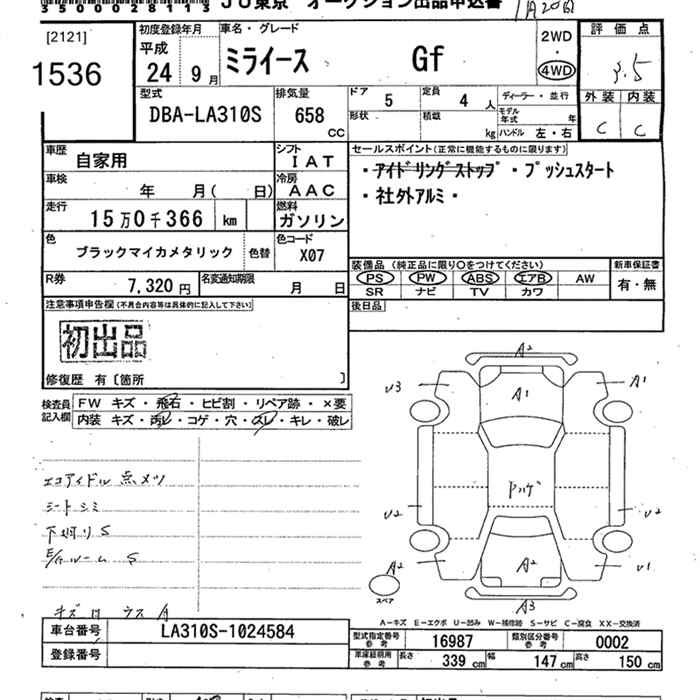 3500028115 JU東京 オークション出品申込書
[2121]
1536
初度登録年月 車名・グレード
平成 24年 9月 ミライース Gf
2WD
4WD
評価点
3.5
外装 内装
C C
型式 DBA-LA310S
排気量 658 CC
ドア 5 定員 4人 ディーラー・並行
形状 積載 kg モデル年式 年
ハンドル 左・右
車歴 自家用
シフト IAT
車検 年 月( 日)
冷房 AAC
走行 15万0千366 km
燃料 ガソリン
色 ブラックマイカメタリック 色替
色コード X07
R券 7,320円 名変通知期限 月 日
セールスポイント(正常に機能するものに限ります)
・アイドリングストップ・プッシュスタート
・社外アルミ・
装備品 (純正品に限り○をつけてください) 新車保証書
PS PW ABS エアB AW 有・無
SR ナビ TV カワ
後日品
注意事項申告欄(不具合内容等は具体的に記入して下さい)
初出品
修復歴 有〔箇所 〕
検査員記入欄
FW キズ・飛石・ヒビ割・リペア跡・×要
内装 キズ・汚レ・コゲ・穴・スレ・キレ・破レ
エコアイドル点メツ
シートシミ
下廻りS
E/ルームS
キズ
A2
U3 A1 A1
U2 U2
A2 A2 U1
スペア A3
A-キズ E-エクボ U-凹み W-補修跡 S-サビ C-腐食 XX-交換済
車台番号 LA310S-1024584
登録番号
型式指定番号 参考 16987 類別区分番号 参考 0002
車庫証明用 参考 長さ 339cm 幅 147cm 高さ 150cm